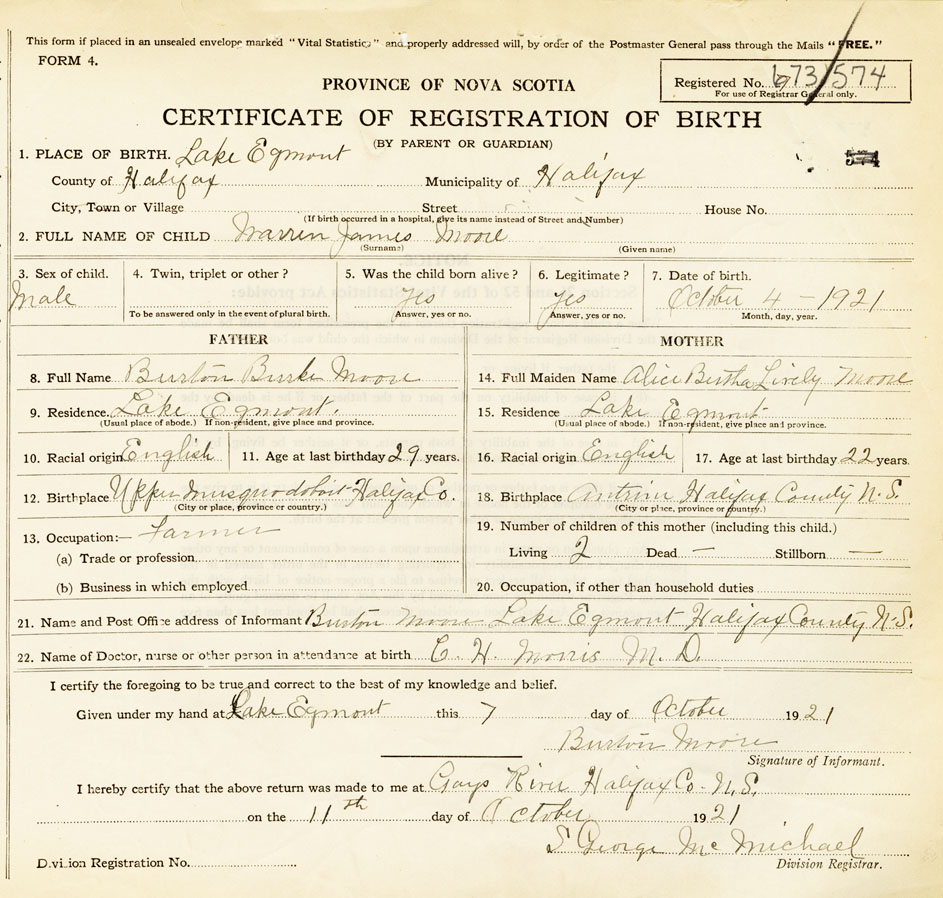 This form if placed in an unsealed envelope marked "Vital Statistics" and properly addressed will, by order of the Postmaster General pass through the Mails "FREE."
FORM 4.
Registered No. 673/574
For use of Registrar General only.
PROVINCE OF NOVA SCOTIA
CERTIFICATE OF REGISTRATION OF BIRTH
(BY PARENT OR GUARDIAN)
1. PLACE OF BIRTH. Lake Egmont
574
County of Halifax Municipality of Halifax
City, Town or Village Street House No.
(If birth occurred in a hospital, give its name instead of Street and Number)
2. FULL NAME OF CHILD Warren James Moore
(Surname) (Given name)
3. Sex of child. 4. Twin, triplet or other? 5. Was the child born alive? 6. Legitimate? 7. Date of birth.
Male Yes Yes October 4 - 1921
To be answered only in the event of plural birth. Answer, yes or no. Answer, yes or no. Month, day, year.
FATHER MOTHER
8. Full Name Burton Burke Moore 14. Full Maiden Name Alice Bertha Lively Moore
9. Residence. Lake Egmont. 15. Residence Lake Egmont
(Usual place of abode.) If non-resident, give place and province. (Usual place of abode.) If non-resident, give place and province.
10. Racial origin English 11. Age at last birthday 29 years. 16. Racial origin English 17. Age at last birthday 22 years.
12. Birthplace Upper Musquodoboit Halifax Co. 18. Birthplace Antrim Halifax County N.S.
(City or place, province or country.) (City or place, province or country.)
13. Occupation:— Farmer 19. Number of children of this mother (including this child.)
(a) Trade or profession Living 2 Dead — Stillborn —
(b) Business in which employed 20. Occupation, if other than household duties
21. Name and Post Office address of Informant Burton Moore Lake Egmont Halifax County N.S.
22. Name of Doctor, nurse or other person in attendance at birth C. H. Morris M. D.
I certify the foregoing to be true and correct to the best of my knowledge and belief.
Given under my hand at Lake Egmont this 7 day of October 1921
Burton Moore
Signature of Informant.
I hereby certify that the above return was made to me at Gays River Halifax Co - N.S.
on the 11th day of October 1921
S George McMichael
Division Registrar.
Division Registration No.